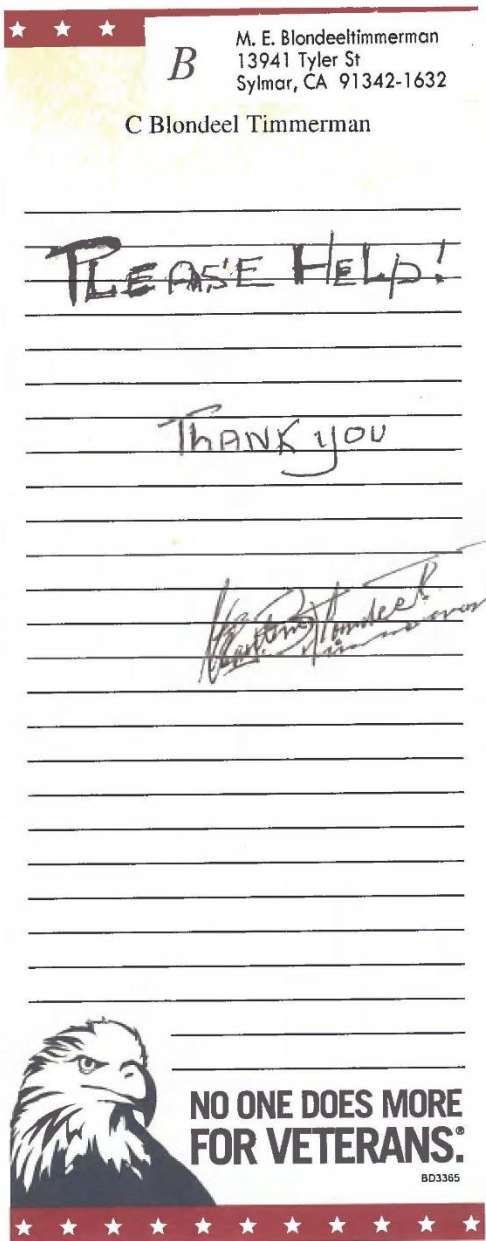 B
M. E. Blondeeltimmerman
13941 Tyler St
Sylmar, CA 91342-1632
C Blondeel Timmerman
PLEASE HELP!
THANK YOU
Blondeel
NO ONE DOES MORE
FOR VETERANS.®
BD3365